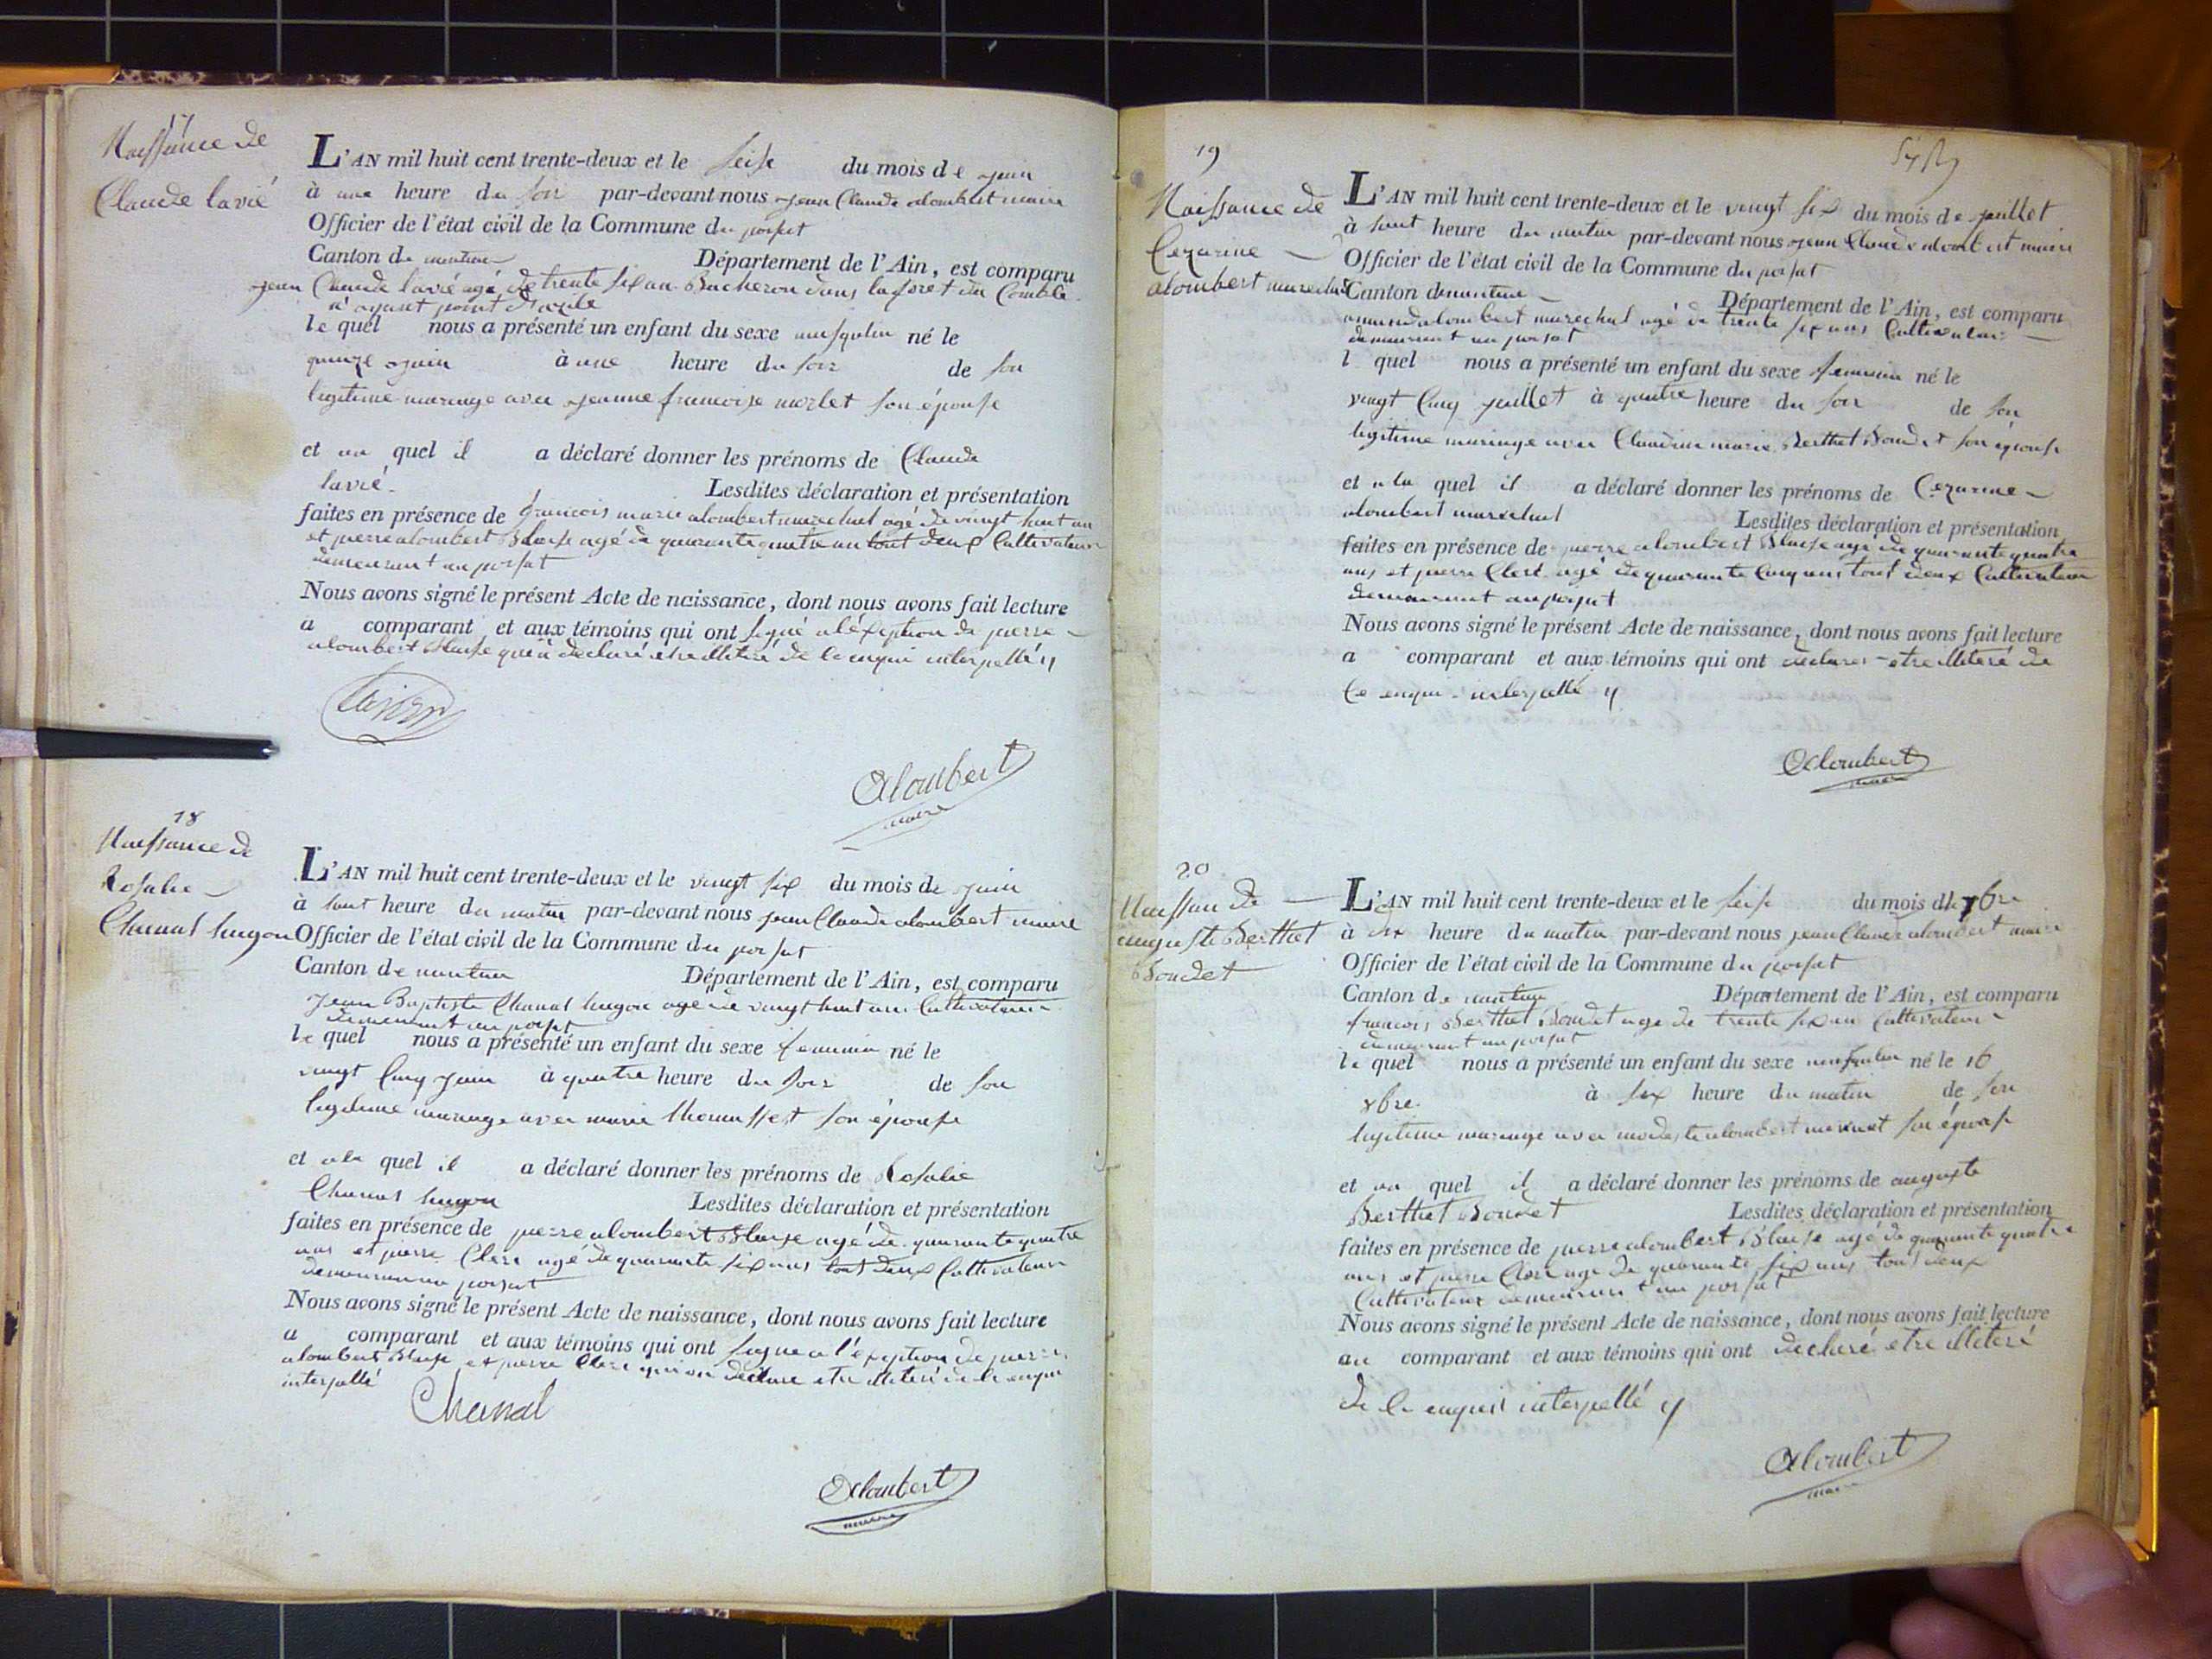 17
Naissance de
Claude lavié
L'AN mil huit cent trente-deux et le seise du mois de juin
à une heure du soir par-devant nous jean Claude alombert maire
Officier de l'état civil de la Commune du poisat
Canton de nantua Département de l'Ain, est comparu
jean Claude lavié agé de trente six an Bucheron dans la foret du Comble
n'ayant point d'azile
le quel nous a présenté un enfant du sexe masqulin né le
quinze juin à une heure du soir de son
legitime mariage avec jeanne francoise morlet son épouse
et au quel il a déclaré donner les prénoms de Claude
lavié. Lesdites déclaration et présentation
faites en présence de francois marie alombert marechal agé de vingt huit an
et pierre alombert Blaise agé de quarante quatre an tout deux Cultivateur
demeurant au poisat
Nous avons signé le présent Acte de naissance, dont nous avons fait lecture
a comparant et aux témoins qui ont signé a léxeption de pierre
alombert Blaise qui a declaré etre illiteré de ce enquis interpellé
Alombert
maire
18
Naissance de
Rosalie
Chanal hugon
L'AN mil huit cent trente-deux et le vingt six du mois de juin
à huit heure du matin par-devant nous jean Claude alombert maire
Officier de l'état civil de la Commune du poisat
Canton de nantua Département de l'Ain, est comparu
jean Baptiste Chanal hugon agé de vingt huit an Cultivateur
demeurant au poisat
le quel nous a présenté un enfant du sexe feminin né le
vingt Cinq juin à quatre heure du soir de son
legitime mariage avec marie thomasset son épouse
et a la quel il a déclaré donner les prénoms de Rosalie
Chanal hugon Lesdites déclaration et présentation
faites en présence de pierre alombert Blaise agé de quarante quatre
ans et pierre Clerc agé de quarante six ans tout deux Cultivateur
demeurant au poisat
Nous avons signé le présent Acte de naissance, dont nous avons fait lecture
a comparant et aux témoins qui ont signe a l'exeption de pierre
alombert Blaise et pierre Clerc qui on déclare etre illiteré de ce enquis
interpellé
Chanal
Alombert
maire
19
Naissance de
Cezarine
alombert marechal
L'AN mil huit cent trente-deux et le vingt six du mois de juillet
à huit heure du matin par-devant nous jean Claude alombert maire
Officier de l'état civil de la Commune du poisat
Canton de nantua Département de l'Ain, est comparu
amand alombert marechal agé de trente six ans Cultivateur
demeurant au poisat
l quel nous a présenté un enfant du sexe feminin né le
vingt Cinq juillet à quatre heure du soir de son
legitime mariage avec Claudine marie Berthet Boudet son épouse
et a la quel il a déclaré donner les prénoms de Cezarine
alombert marechal Lesdites déclaration et présentation
faites en présence de pierre alombert Blaise agé de quarante quatre
ans et pierre Clerc agé de quarante Cinq ans tout deux Cultivateur
demeurant au poisat
Nous avons signé le présent Acte de naissance, dont nous avons fait lecture
a comparant et aux témoins qui ont declarer etre illiteré de
Ce enquis interpellé
Alombert
maire
20
Naissan de
auguste Berthet
Boudet
L'AN mil huit cent trente-deux et le seise du mois de bre
à dix heure du matin par-devant nous jean Claude alombert maire
Officier de l'état civil de la Commune du poisat
Canton de nantua Département de l'Ain, est comparu
francois Berthet Boudet agé de trente six an Cultivateur
demeurant au poisat
le quel nous a présenté un enfant du sexe masqulin né le 16
bre à six heure du matin de son
legitime mariage avec modeste alombert son épouse
et au quel il a déclaré donner les prénoms de auguste
Berthet Boudet Lesdites déclaration et présentation
faites en présence de pierre alombert Blaise agé de quarante quatre
ans et pierre Clerc agé de quarante six ans tout deux
Cultivateur demeurant au poisat
Nous avons signé le présent Acte de naissance, dont nous avons fait lecture
au comparant et aux témoins qui ont declaré etre illiteré
de ce enquis interpellé
Alombert
maire